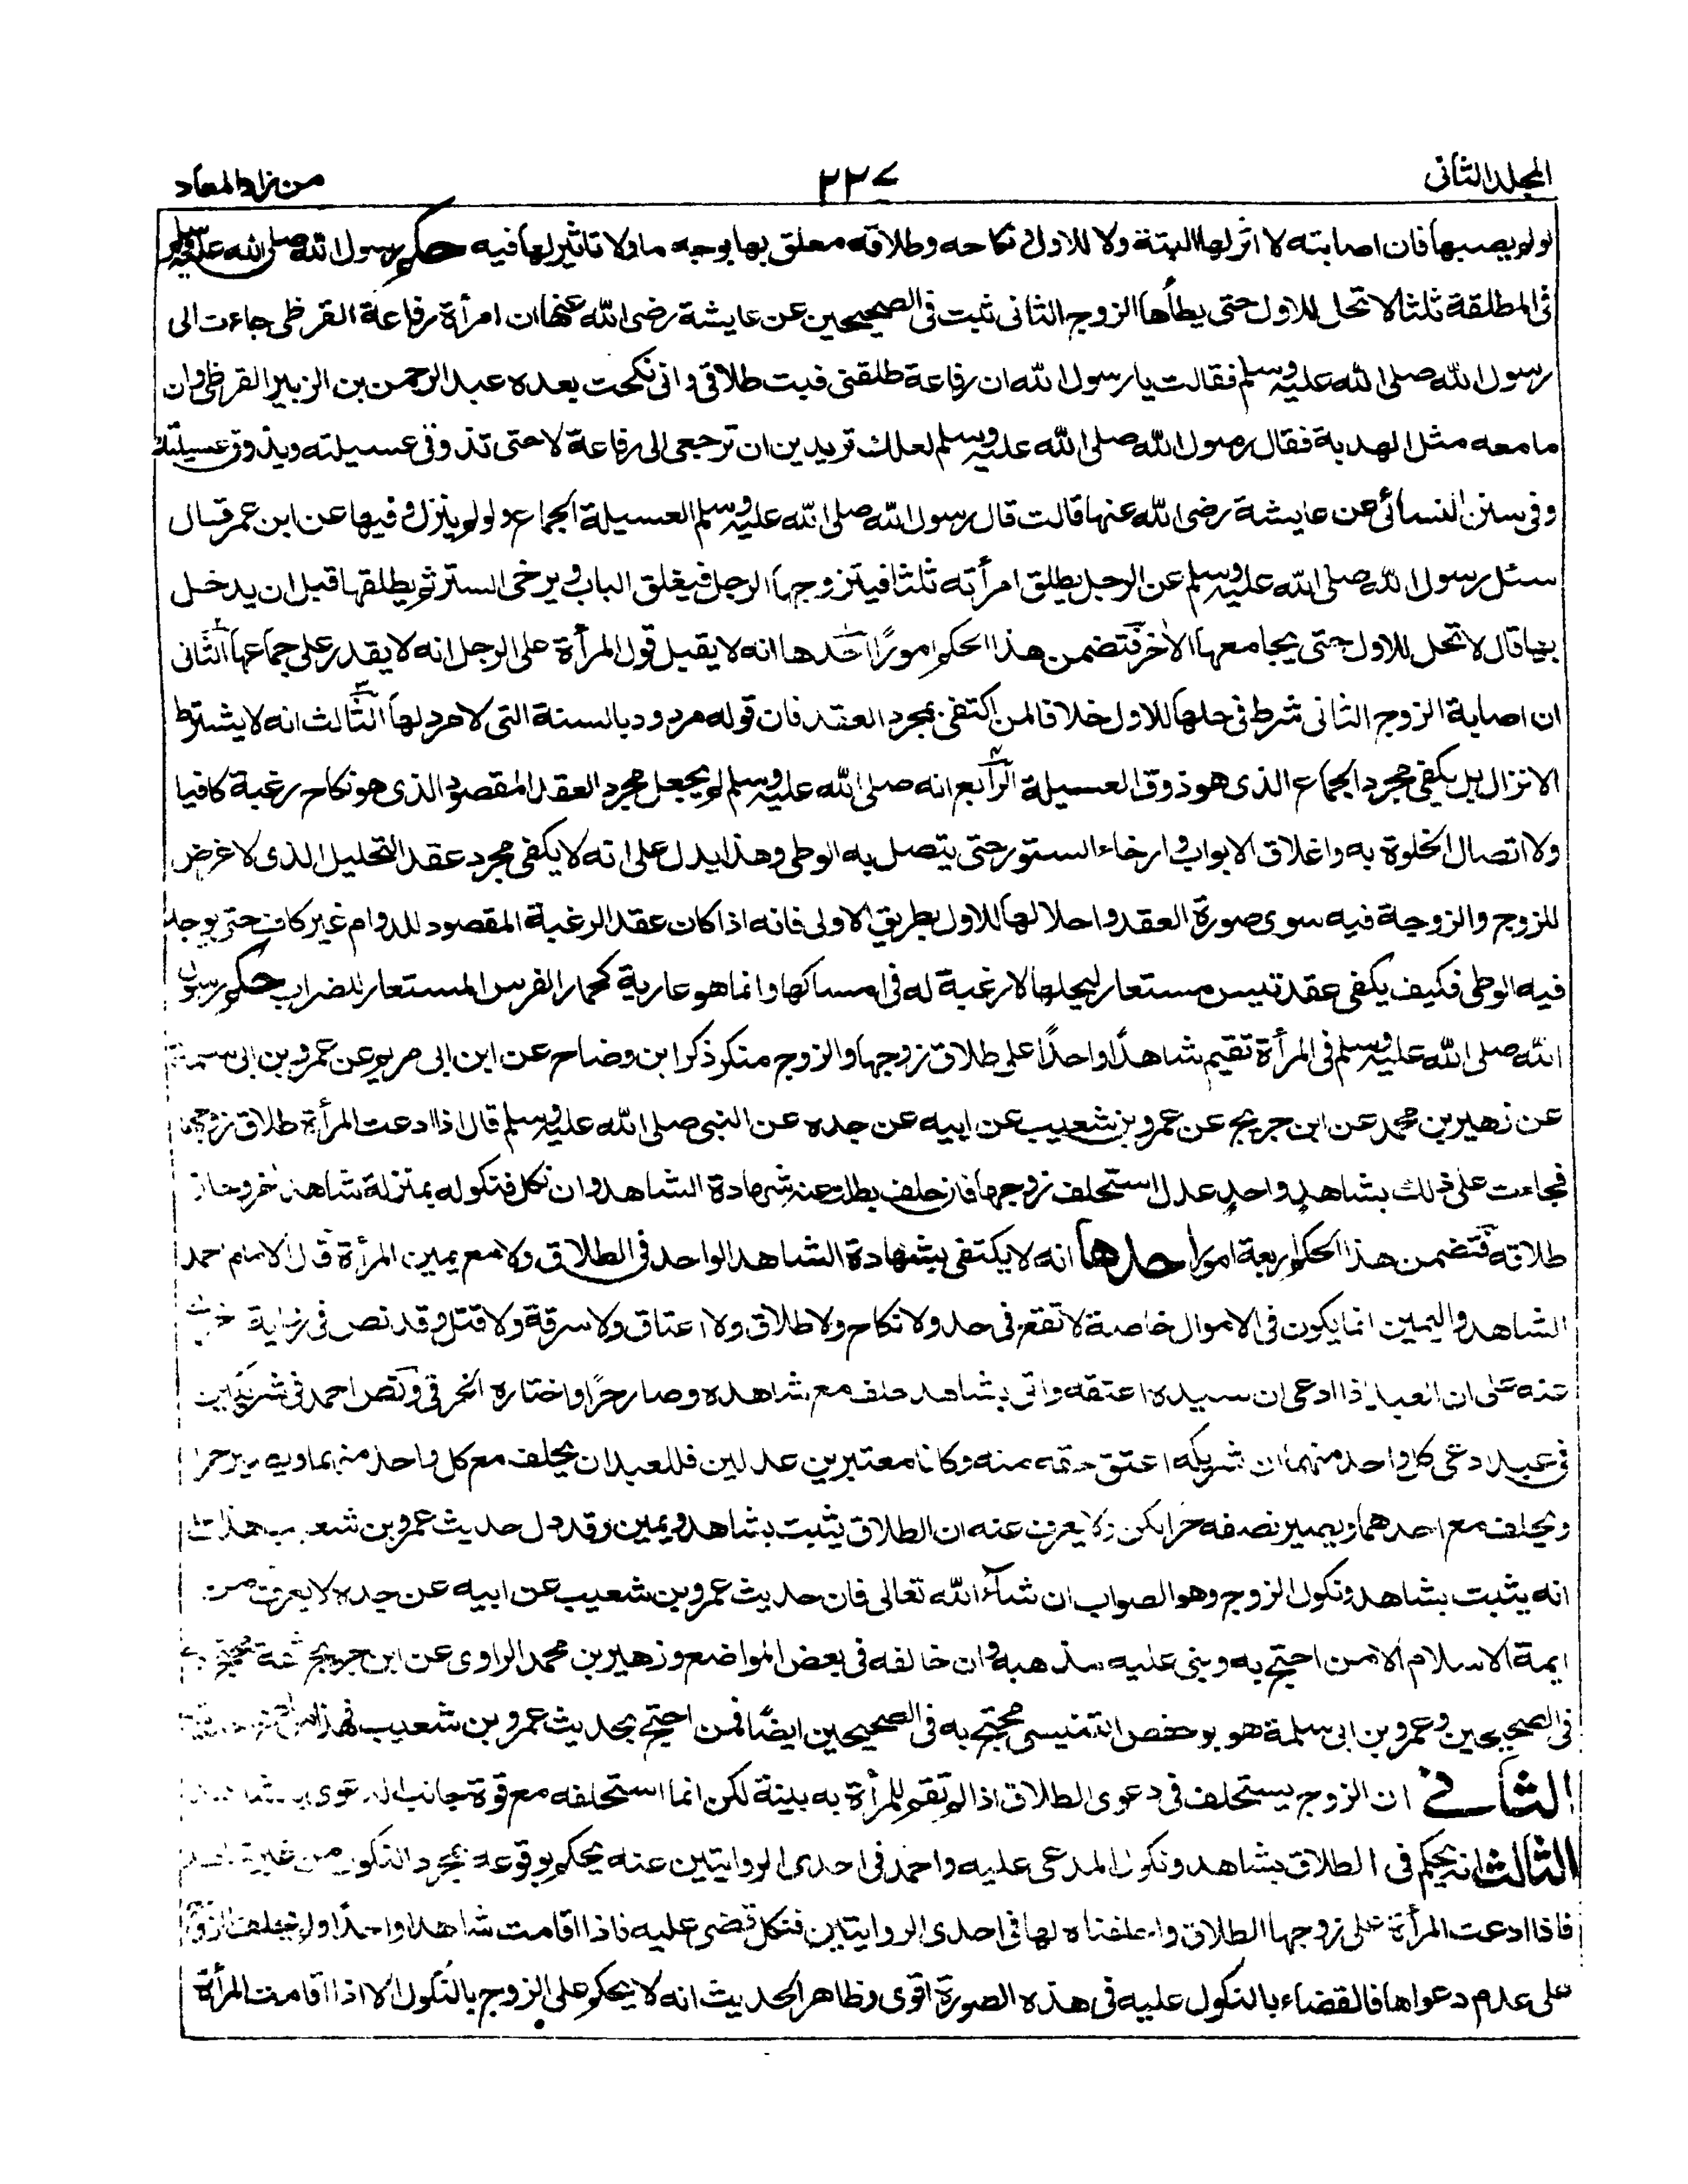 المجلد الثانى
٢٢٧
من زاد المعاد
لو لم يصبها فان اصابته لا اثر لها البتة ولا للاول فى نكاحه وطلاقه معلق بها بوجه ما ولا تاثير لها فيه حكم رسول الله صلى الله عليه وسلم
فى المطلقة ثلثا لا تحل للاول حتى يطأها الزوج الثانى ثبت فى الصحيحين عن عايشة رضى الله عنها ان امرأة رفاعة القرظى جاءت الى
رسول الله صلى الله عليه وسلم فقالت يا رسول الله ان رفاعة طلقنى فبت طلاقى وانى نكحت بعده عبد الرحمن بن الزبير القرظى وان
ما معه مثل الهدبة فقال رسول الله صلى الله عليه وسلم لعلك تريدين ان ترجعى الى رفاعة لا حتى تذوقى عسيلته ويذوق عسيلتك
وفى سنن النسائى عن عايشة رضى الله عنها قالت قال رسول الله صلى الله عليه وسلم العسيلة الجماع ولو لم ينزل وفيها عن ابن عمر قال
سئل رسول الله صلى الله عليه وسلم عن الرجل يطلق امرأته ثلثا فيتزوجها الرجل فيغلق الباب ويرخى الستر ثم يطلقها قبل ان يدخل
بها قال لا تحل للاول حتى يجامعها الاخر فتضمن هذا الحكم امورًا احدها انه لا يقبل قول المرأة على الرجل انه لا يقدر على جماعها الثانى
ان اصابة الزوج الثانى شرط فى حلها للاول خلافا لمن اكتفى بمجرد العقد فان قوله مردود بالسنة التى لا مرد لها الثالث انه لا يشترط
الانزال بل يكفى مجرد الجماع الذى هو ذوق العسيلة الرابع انه صلى الله عليه وسلم لم يجعل مجرد العقد المقصود الذى هو نكاح رغبة كافيا
ولا اتصال الخلوة به واغلاق الابواب وارخاء الستور حتى يتصل به الوطى وهذا يدل على انه لا يكفى مجرد عقد التحليل الذى لا غرض
للزوج والزوجة فيه سوى صورة العقد واحلالها للاول بطريق الاولى فانه اذا كان عقد الرغبة المقصود للدوام غير كاف حتى يوجد
فيه الوطى فكيف يكفى عقد تيس مستعار ليحلها لا رغبة له فى امساكها وانما هو عارية كحمار الفرس المستعار للضراب حكم رسول
الله صلى الله عليه وسلم فى المرأة تقيم شاهدًا واحدًا على طلاق زوجها والزوج منكر ذكر ابن وضاح عن ابن ابى مريم عن عمرو بن ابى سلمة
عن زهير بن محمد عن ابن جريج عن عمرو بن شعيب عن ابيه عن جده عن النبى صلى الله عليه وسلم قال اذا ادعت المرأة طلاق زوجها
فجاءت على ذلك بشاهدٍ واحدٍ عدل استحلف زوجها فان حلف بطلت عنه شهادة الشاهد وان نكل فنكوله بمنزلة شاهد اخر وجاز
طلاقه فتضمن هذا الحكم اربعة امور احدها انه لا يكتفى بشهادة الشاهد الواحد فى الطلاق ولا مع يمين المرأة قال الامام احمد
الشاهد واليمين انما يكون فى الاموال خاصة لا تقع فى حد ولا نكاح ولا طلاق ولا اعتاق ولا سرقة ولا قتل وقد نص فى رواية اخرى
عنه على ان العبد اذا ادعى ان سيده اعتقه واتى بشاهد حلف مع شاهده وصار حرًا واختاره الخرقى ونص احمد فى شريكين
فى عبد ادعى كل واحد منهما ان شريكه اعتق حقه منه وكانا معتبرين عدلين فللعبد ان يحلف مع كل واحد منهما ويصير حرا
ويحلف مع احدهما ويصير نصفه حرا لكن لا يعرف عنه ان الطلاق يثبت بشاهد ويمين وقد دل حديث عمرو بن شعيب هذا على
انه يثبت بشاهد ونكول الزوج وهو الصواب ان شآء الله تعالى فان حديث عمرو بن شعيب عن ابيه عن جده لا يعرف من
ايمة الاسلام الا من احتج به وبنى عليه مذهبه وان خالفه فى بعض المواضع وزهير بن محمد الراوى عن ابن جريج ثقة محتج به
فى الصحيحين وعمرو بن ابى سلمة هو بو حفص التنيسى محتج به فى الصحيحين ايضًا فمن احتج بحديث عمرو بن شعيب فهذا
الثانى ان الزوج يستحلف فى دعوى الطلاق اذا لم تقم للمرأة به بينة لكن انما استحلفه مع قوة جانب الدعوى بالشاهد
الثالث انه يحكم فى الطلاق بشاهد ونكول المدعى عليه واحمد فى احدى الروايتين عنه يحكم بوقوعه بمجرد النكول من غير شاهد
فاذا ادعت المرأة على زوجها الطلاق واحلفناه لها فى احدى الروايتين فنكل قضى عليه فاذا اقامت شاهدا واحدًا ولم يحلف الزوج
على عدم دعواها فالقضاء بالنكول عليه فى هذه الصورة اقوى وظاهر الحديث انه لا يحكم على الزوج بالنكول الا اذا اقامت المرأة